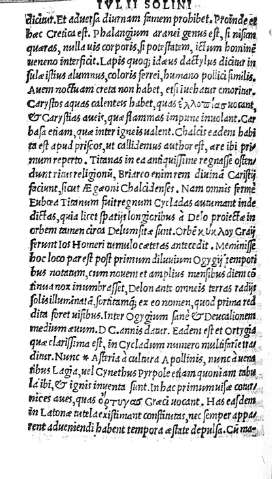 IVLII SOLINI
dicitur. Et aduersa diurnam famem prohibet. Proinde et
hæc Cretica est. Phalangium aranei genus est, si nisum
quæras, nulla uis corporis, si potestatem, ictum hominem
ueneno interficit. Lapis quoq; idæus dactylus dicitur in
sulæ istius alumnus, coloris ferrei, humano pollici similis.
Auem noctuam creta non habet, et si inuehatur emoritur.
Carystos aquas calentes habet, quas ἑλλοπίας uocant,
& Carystias aueis, quæ flammas impune inuolant. Car
basa etiam, quæ inter igneis ualent. Chalcis eadem habi
ta est apud priscos, ut callidemus author est, ære ibi pri
mum reperto. Titanas in ea antiquissime regnasse osten
dunt ritus religionū. Briareo enim rem diuinā Caristij
faciunt, sicut Ægeoni Chalcidenses. Nam omnis fermè
Eubœa Titanum fuit regnum Cycladas autumant inde
dictas, quia licet spatijs longioribus à Delo proiectæ in
orbem tamen circa Delum sitæ sunt. Orbē
ferunt Ios Homeri tumulo cæteras antecedit. Meminisse
hoc loco par est post primum diluuium Ogygij tempori
bus notatum, cum nouem et amplius mensibus diem cō
tinua nox inumbrasset, Delon ante omneis terras radijs
solis illuminatā, sortitamq; ex eo nomen, quod prima red
dita foret uisibus. Inter Ogygium sanè & Deucalionem
medium æuum. D C. annis datur. Eadem est et Ortygia
quæ clarissima est, in Cycladum numero multifariè tra
ditur. Nunc * Astria à cultura Apollinis, nunc à uena
tibus Lagia, uel Cynethus Pyrpole etiam quoniam tabu
la ibi, & ignis inuenta sunt. In hac primum uisæ cotur
nices aues, quas ὄρτυγας Græci uocant. Has easdem
in Latonæ tutela existimant constitutas, nec semper appa
rent adueniendi habent tempora æstate depulsa. Cū ma-